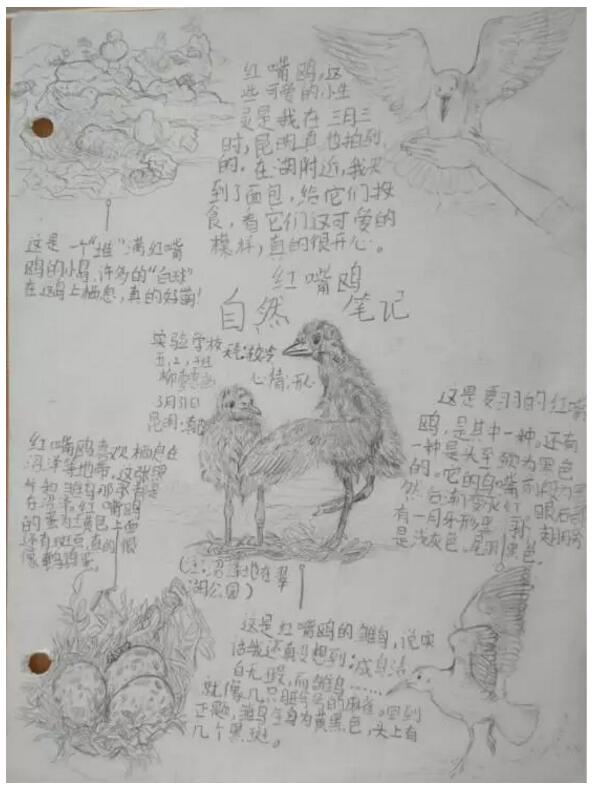 红嘴鸥，这
些可爱的小生
灵是我在三月三
时，昆明
的。在湖附近，我买
到了面包，给它们投
食，看它们这可爱的
模样，真的很开心。
这是一个“堆”满红嘴
鸥的小岛，许多的“白球”
在这岛上栖息，真的好萌！
红嘴鸥
自然 笔记
实验学校
五，2，班
心情：开心
3月31日
昆明：
这是夏羽的红嘴
鸥，是其中一种。还有
一种是头至颈为黑色
的。它的鸟嘴前段为黑
然后渐变成红，眼后部
有一月牙形黑斑，翅膀
是浅灰色，尾羽黑色。
红嘴鸥喜欢栖息在
沼泽等地带，这张卵
在沼泽。红嘴鸥
的蛋为土黄色，上面
还有斑点，真的很
像鹌鹑蛋。
（注：沼泽地在翠
湖公园）
这是红嘴鸥的雏鸟，说实
话我还真没想到：成鸟洁
白无瑕，而雏鸟……
就像几只脏兮兮的麻雀。回到
正题，雏鸟全身为黄黑色，头上有
几个黑斑。